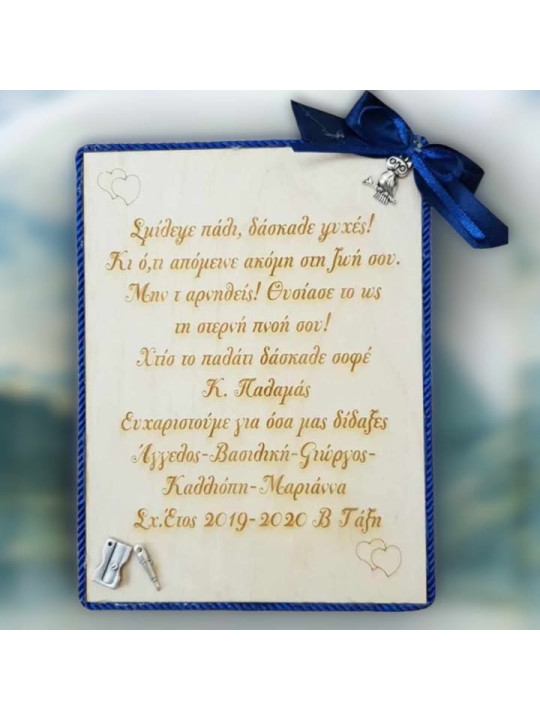 Σμίλεψε πάλι, δάσκαλε ψυχές!
Κι ό,τι απόμεινε ακόμη στη ζωή σου.
Μην τ αρνηθείς! Θυσίασε το ως
τη στερνή πνοή σου!
Χτίσ το παλάτι δάσκαλε σοφέ
Κ. Παλαμάς
Ευχαριστούμε για όσα μας δίδαξες
Άγγελος-Βασιλική-Γιώργος-
Καλλιόπη-Μαριάννα
Σχ.Έτος 2019-2020 Β Τάξη